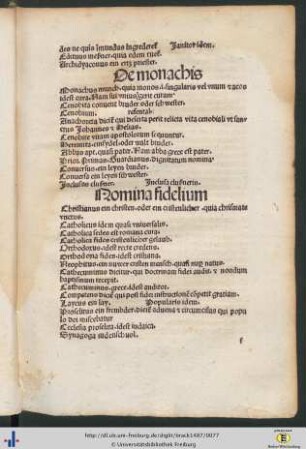 des ne quis īmundus ingrederet Janitor idem.
Edituus meßner quia edem tuet
Archidyaconus ein ertz priester.
De monachis
Monachus munch quia monos .i. singularis vel vnum
idest cura
Cenobita conuent bruder oder schwester
Cenobium
Anachoreta dicit qui deserta petit relicta vita cenobiali vt
Johannes et Helias.
Cenobite vitam apostolorum sequuntur.
Heremita einsydel oder walt bruder.
Abbas apt. quasi pater. Nam abba grece est pater.
Prior. Primas. Guardianus. dignitatum nomina
Conuersus ein leyen bruder.
Conuersa ein leyen schwester.
Inclusus clusner. Inclusa clusnerin.
Nomina fidelium
Christianus ein christen oder ein cristenlicher quia chrismate
vnctus.
Catholicus idem quasi vniuersalis.
Catholica sedes est romana
Catholica fides cristenlicher gelaub.
Orthodoxus idest recte credens.
Orthodoxa fides idest cristiana.
Neophitus ein nuwer cristen mensch quasi
Cathecuminus dicitur qui doctrinam fidei audit et nondum
baptismum recepit.
Cathecuminus grece idest auditor.
Competens dicit qui post fidei instructionē cōpetit gratiam.
Laycus ein lay. Popularis idem.
Proselitus ein frembder dicit aduena et circumcisus qui popu
lo dei miscebatur
Ecclesia
Synagoga
f
http://dl.ub.uni-freiburg.de/diglit/brack1487/0077
© Universitätsbibliothek Freiburg